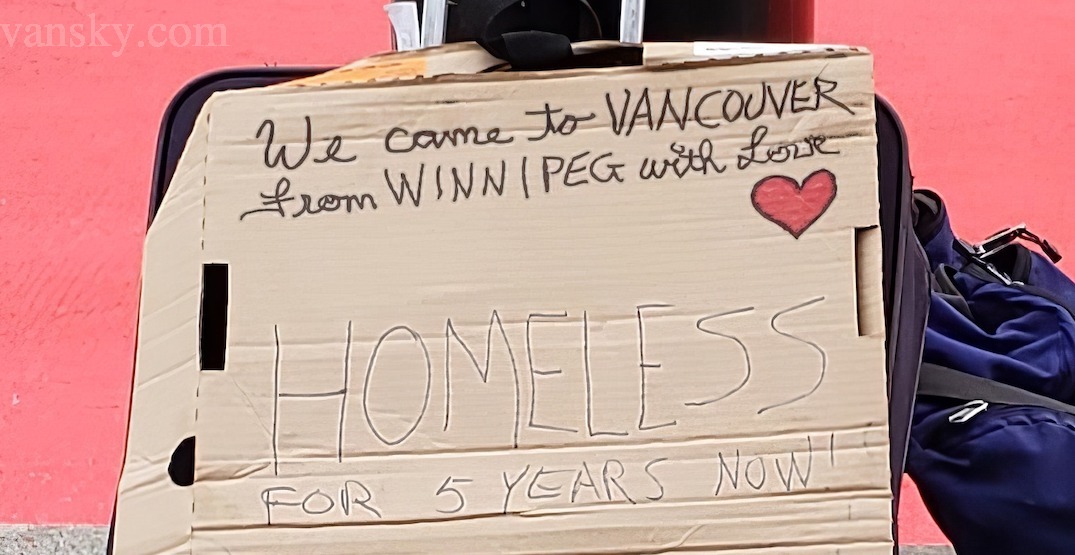 vansky.com
We came to VANCOUVER
from WINNIPEG with Love
HOMELESS
FOR 5 YEARS NOW!